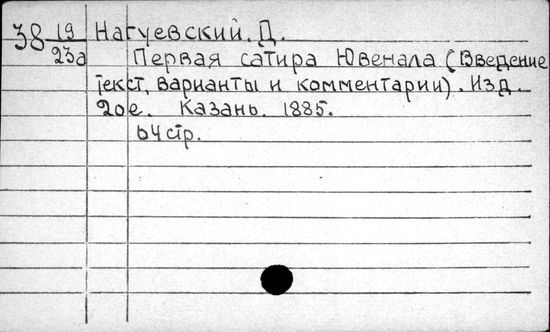 38 19 Нагуевский. Д.
23а Первая сатира Ювенала (Введение
текст, варианты и комментарии). Изд.
2ое. Казань. 1885.
64 стр.